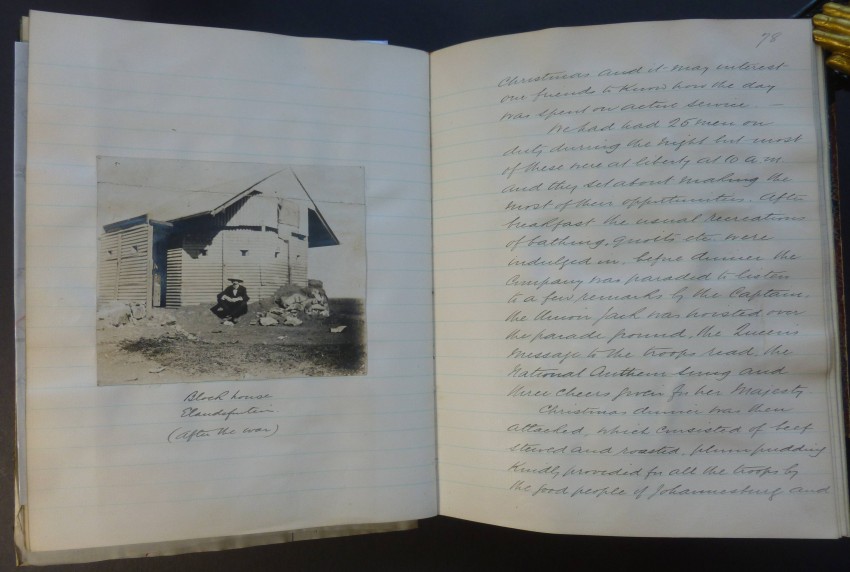 Block house
Elandsfontein
(After the war)
78
Christmas and it may interest
our friends to know how the day
was spent on active service. —
We had had 26 men on
duty during the night but most
of these were at liberty at 10 a.m.
and they set about making the
most of their opportunities. After
breakfast the usual recreations
of bathing, quoits, etc were
indulged in. before dinner the
Company was paraded to listen
to a few remarks by the Captain.
the Union Jack was hoisted over
the parade ground, the Queen's
message to the troops read, the
National Anthem sung and
three cheers given for her Majesty
Christmas dinner was then
attacked, which consisted of beef
stewed and roasted, plum pudding
Kindly provided for all the troops by
the good people of Johannesburg and